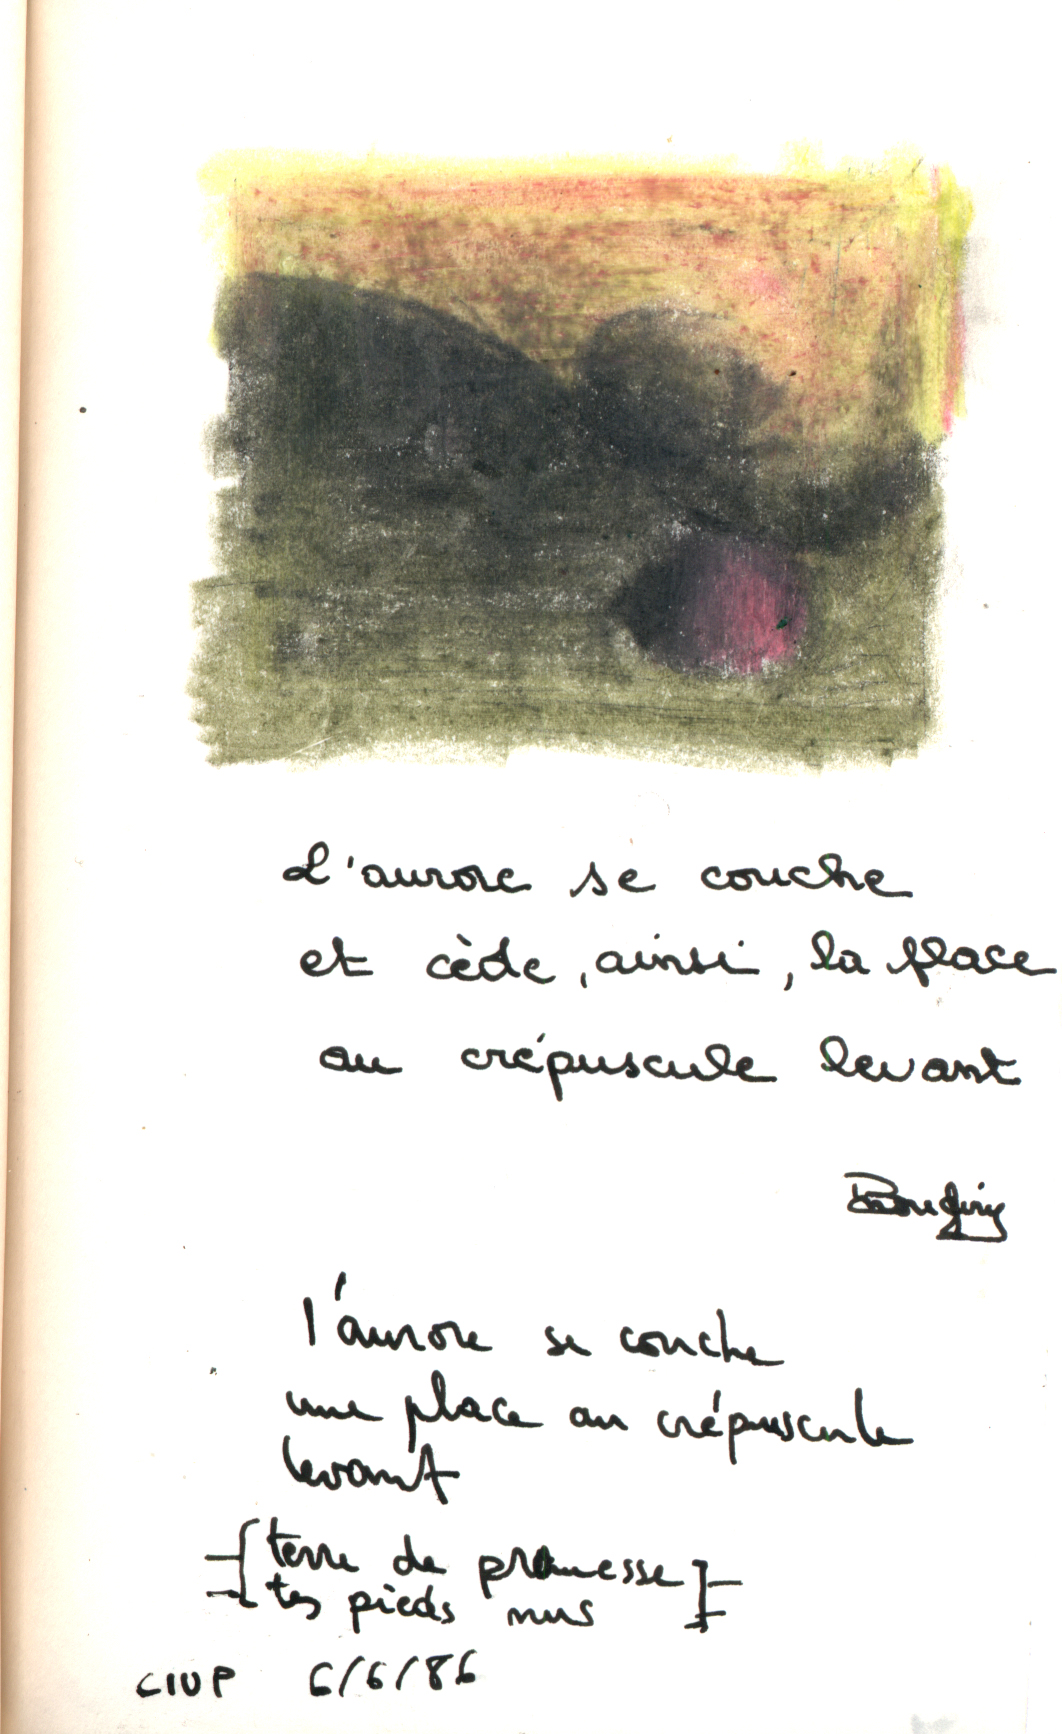 L'aurore se couche
et cède, ainsi, la place
au crépuscule levant
l'aurore se couche
une place au crépuscule
levant
terre de promesse
tes pieds nus
CIUP 6/6/86